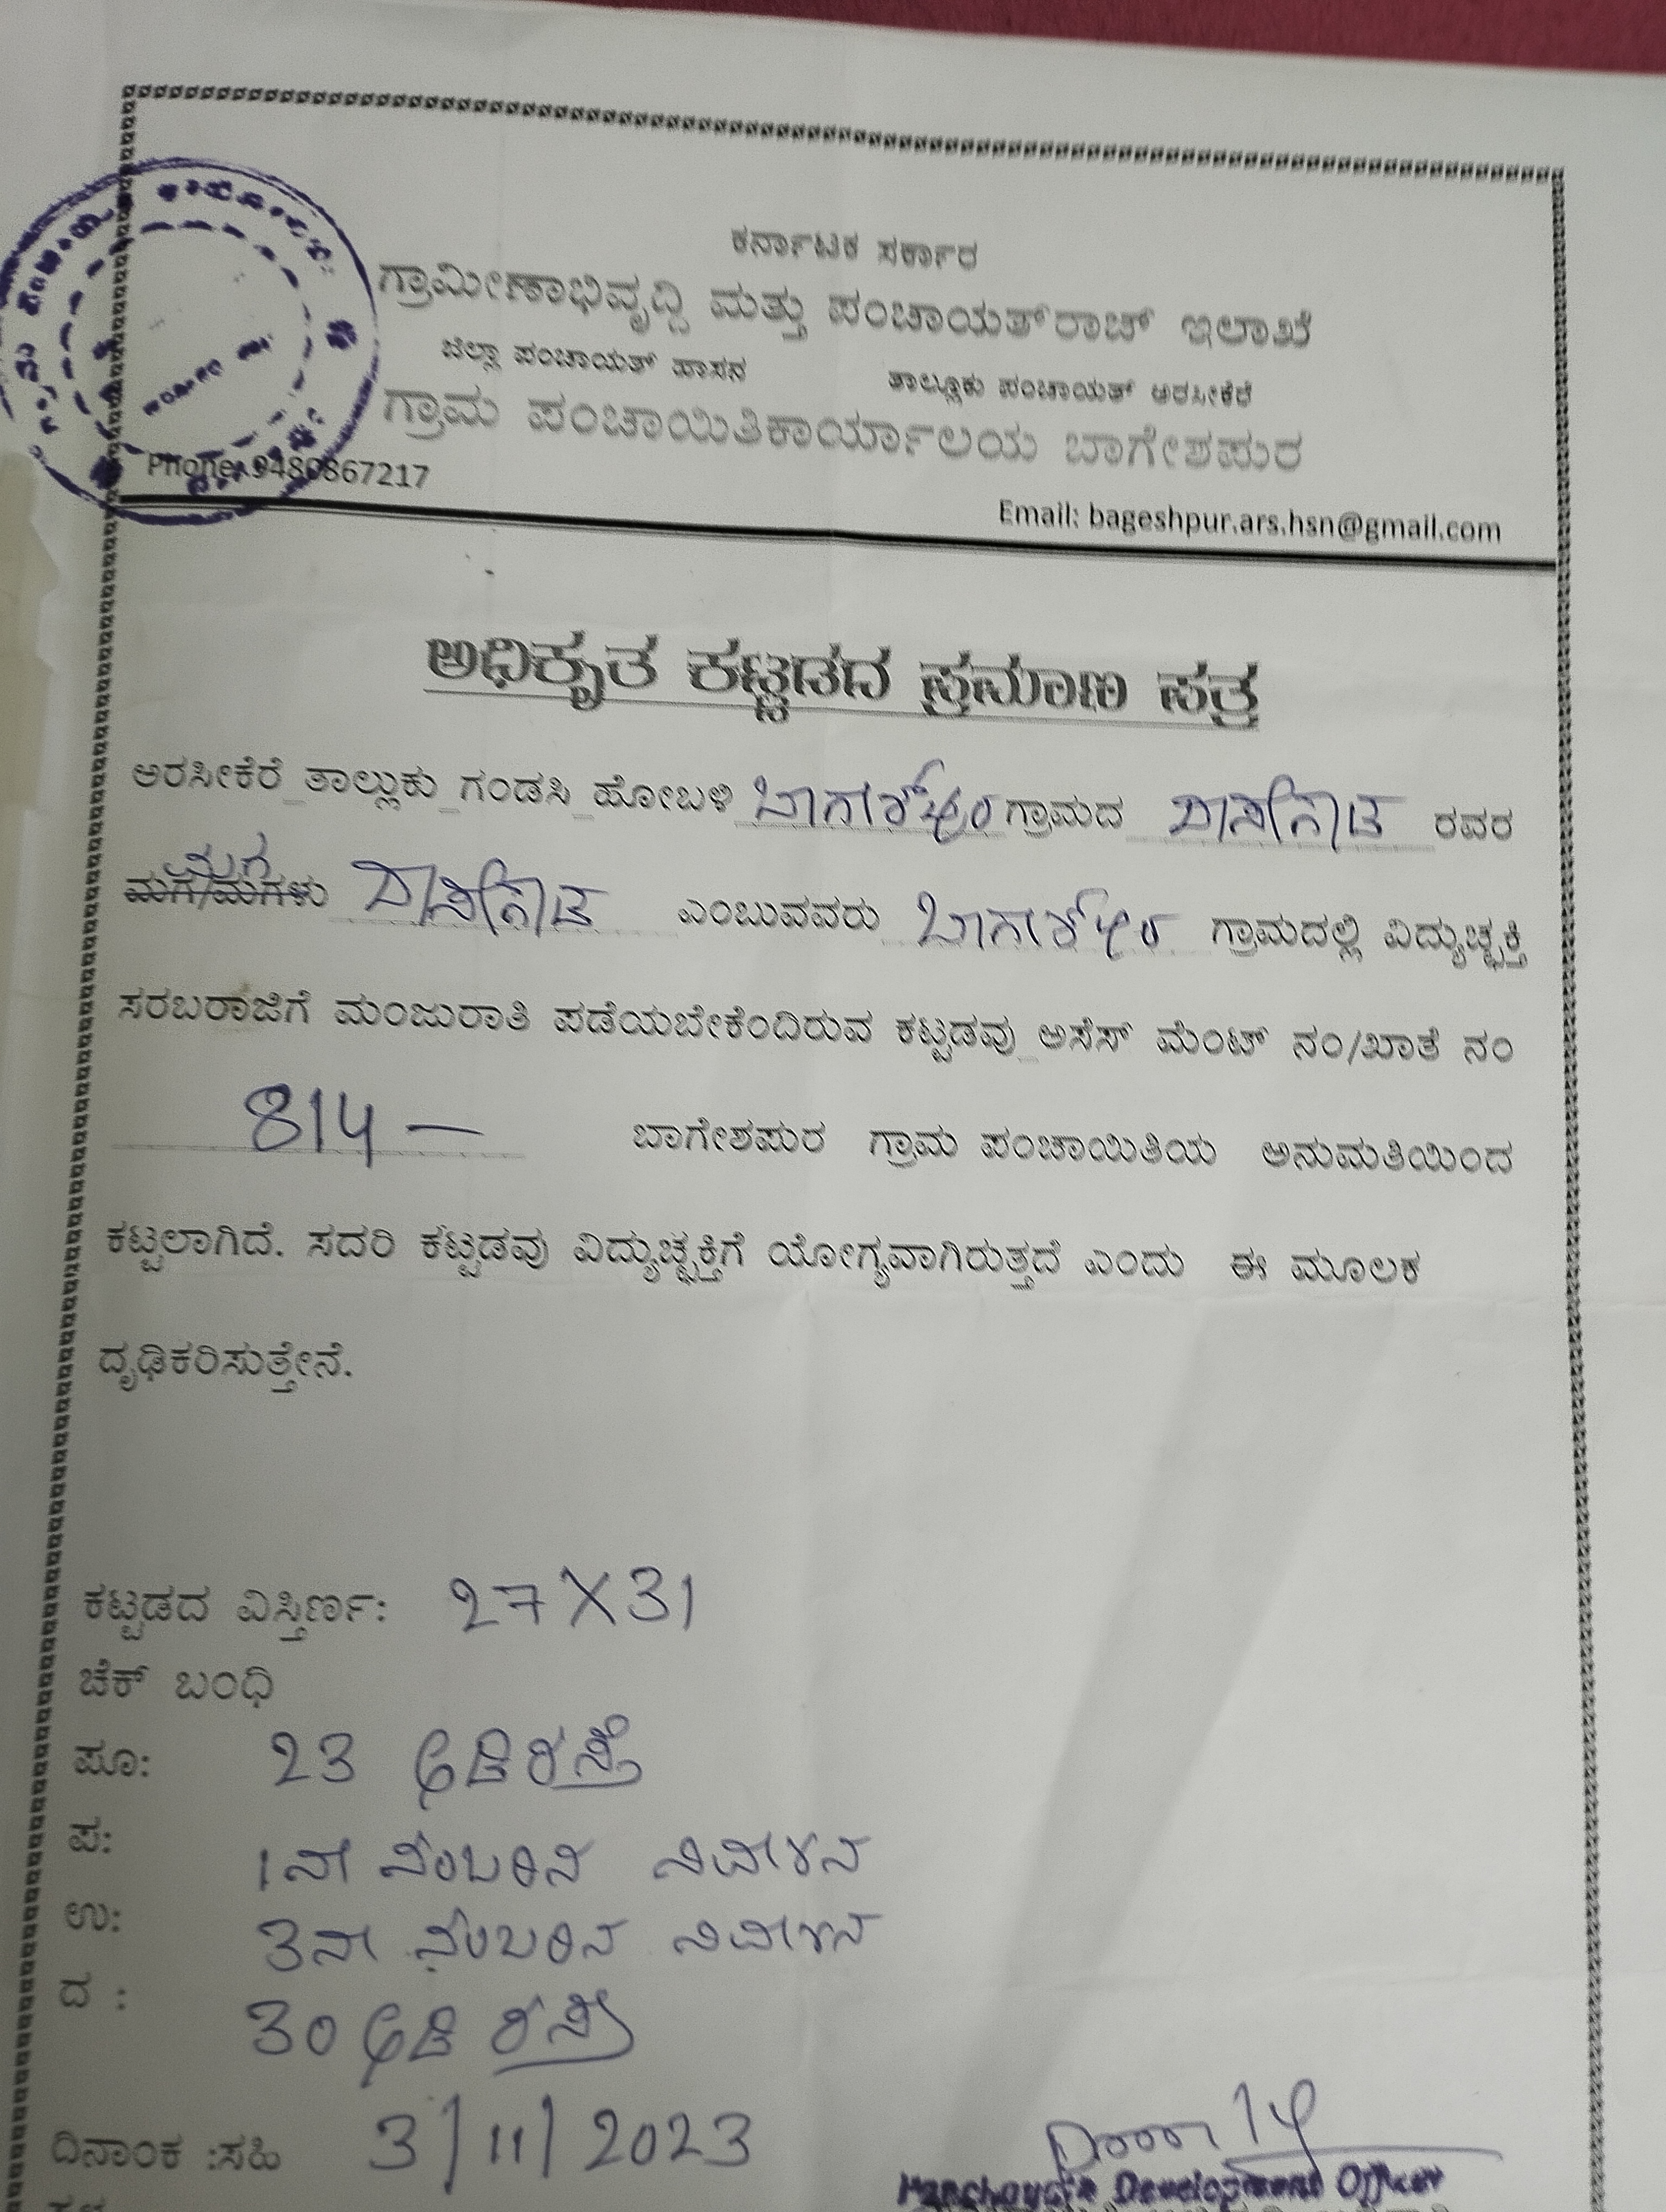 ಕರ್ನಾಟಕ ಸರ್ಕಾರ
ಗ್ರಾಮೀಣಾಭಿವೃದ್ಧಿ ಮತ್ತು ಪಂಚಾಯತ್‌ರಾಜ್ ಇಲಾಖೆ
ಜಿಲ್ಲಾ ಪಂಚಾಯತ್ ಹಾಸನ ತಾಲ್ಲೂಕು ಪಂಚಾಯತ್ ಅರಸೀಕೆರೆ
ಗ್ರಾಮ ಪಂಚಾಯಿತಿಕಾರ್ಯಾಲಯ ಬಾಗೇಶಪುರ
Phone: 9480867217
Email: bageshpur.ars.hsn@gmail.com
ಅಧಿಕೃತ ಕಟ್ಟಡದ ಪ್ರಮಾಣ ಪತ್ರ
ಅರಸೀಕೆರೆ ತಾಲ್ಲುಕು ಗಂಡಸಿ ಹೋಬಳಿ ಗ್ರಾಮದ ರವರ
ಮಗ
ಮಗ/ಮಗಳು ಎಂಬುವವರು ಗ್ರಾಮದಲ್ಲಿ ವಿದ್ಯುಚ್ಛಕ್ತಿ
ಸರಬರಾಜಿಗೆ ಮಂಜುರಾತಿ ಪಡೆಯಬೇಕೆಂದಿರುವ ಕಟ್ಟಡವು ಅಸೆಸ್ ಮೆಂಟ್ ನಂ/ಖಾತೆ ನಂ
814 — ಬಾಗೇಶಪುರ ಗ್ರಾಮ ಪಂಚಾಯಿತಿಯ ಅನುಮತಿಯಿಂದ
ಕಟ್ಟಲಾಗಿದೆ. ಸದರಿ ಕಟ್ಟಡವು ವಿದ್ಯುಚ್ಛಕ್ತಿಗೆ ಯೋಗ್ಯವಾಗಿರುತ್ತದೆ ಎಂದು ಈ ಮೂಲಕ
ದೃಢಿಕರಿಸುತ್ತೇನೆ.
ಕಟ್ಟಡದ ವಿಸ್ತಿರ್ಣ: 27 X 31
ಚೆಕ್ ಬಂಧಿ
ಪೂ: 23 ಅಡಿ ರಸ್ತೆ
ಪ: 1ನೇ ನಂಬರಿನ ನಿವೇಶನ
ಉ: 3ನೇ ನಂಬರಿನ ನಿವೇಶನ
ದ : 30 ಅಡಿ ರಸ್ತೆ
ದಿನಾಂಕ :ಸಹಿ 3/11/2023
Panchayath Development Officer